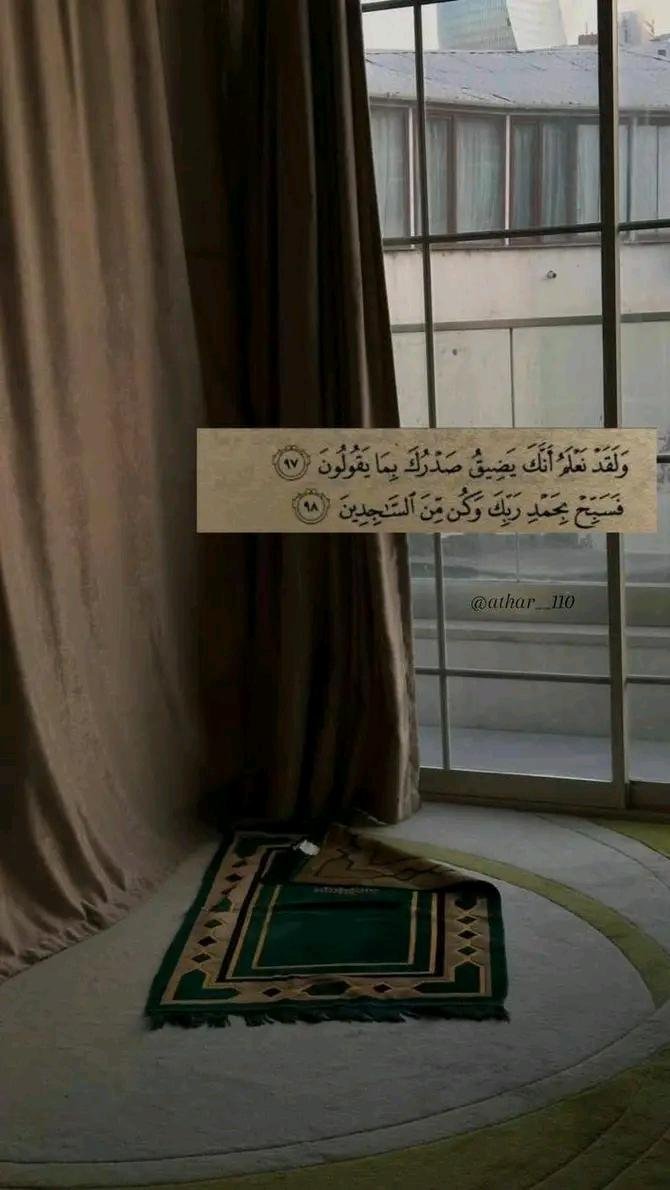 وَلَقَدْ نَعْلَمُ أَنَّكَ يَضِيقُ صَدْرُكَ بِمَا يَقُولُونَ ٩٧
فَسَبِّحْ بِحَمْدِ رَبِّكَ وَكُن مِّنَ ٱلسَّٰجِدِينَ ٩٨
@athar__110